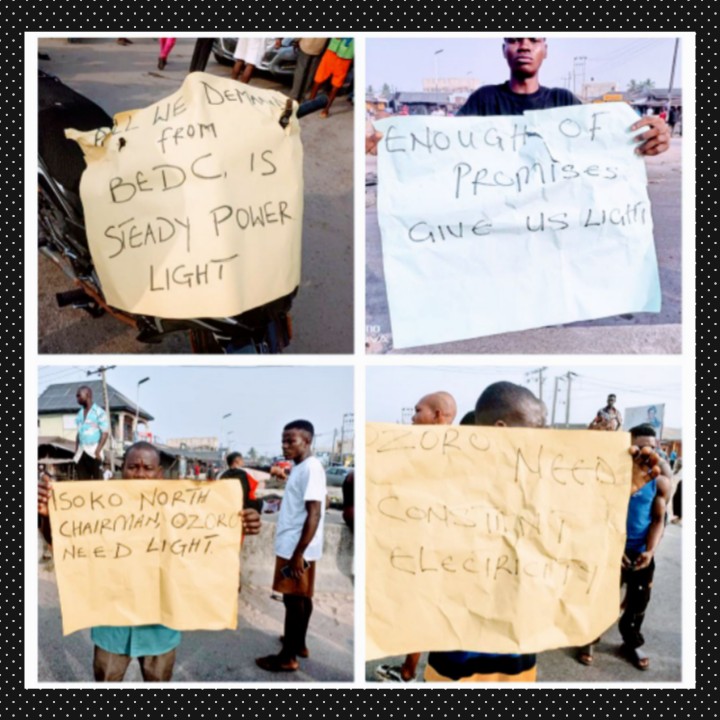 ALL WE DEMAND
from
BEDC, IS
STEADY POWER
LIGHT
ENOUGH OF
PROMISES
GIVE US LIGHT
ISOKO NORTH
CHAIRMAN, OZORO
NEED LIGHT
OZORO NEED
CONSTANT
ELECIRICITY